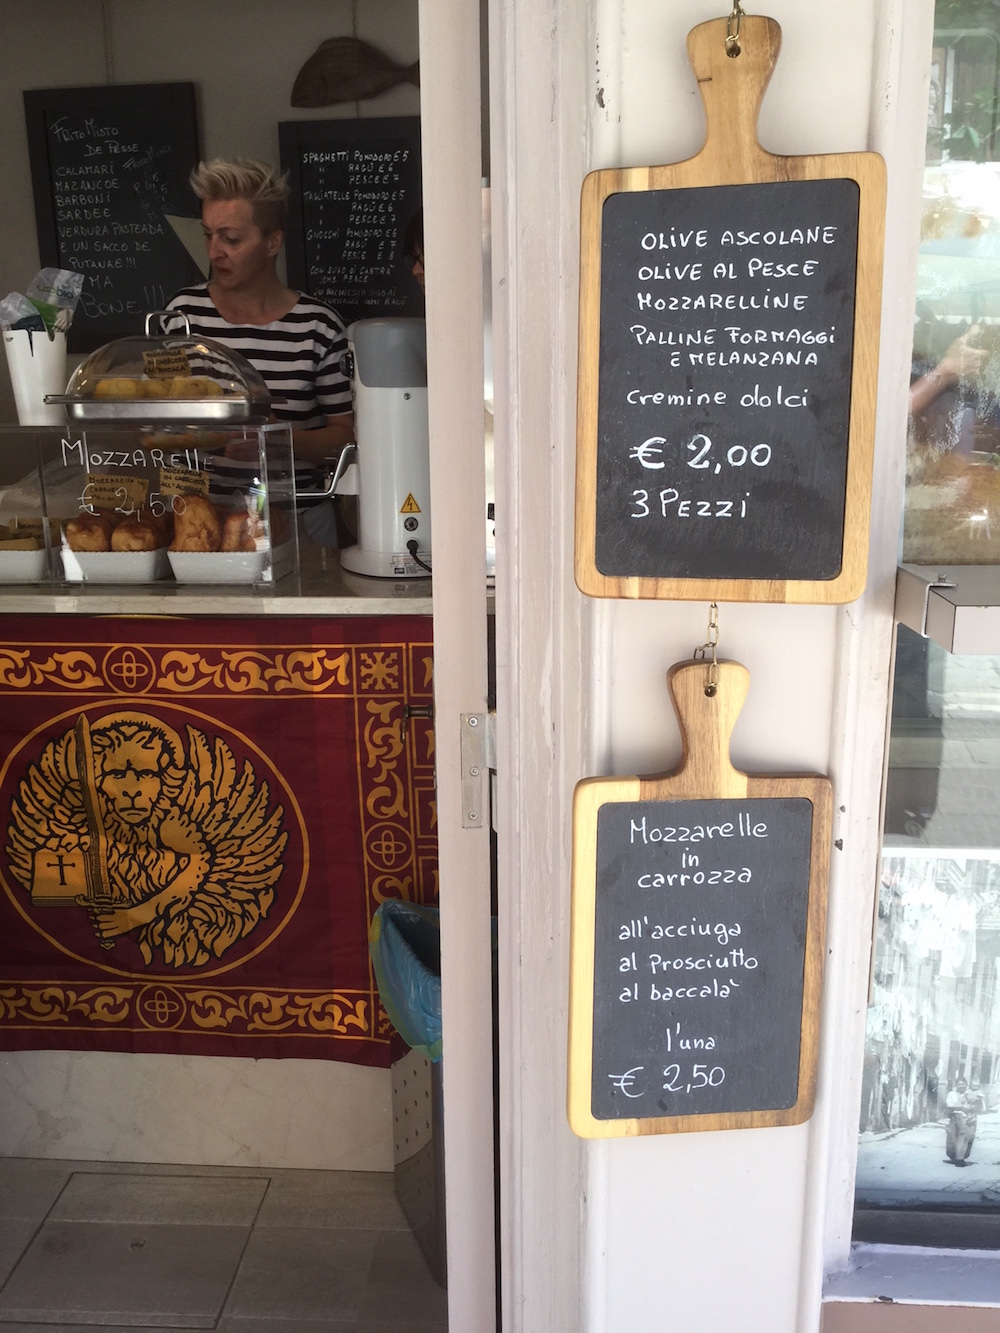 OLIVE ASCOLANE
OLIVE AL PESCE
MOZZARELLINE
PALLINE FORMAGGI
E MELANZANA
cremine dolci
€ 2,00
3 PEZZI
Mozzarelle
in
carrozza
all'acciuga
al prosciutto
al baccala'
l'una
€ 2,50
FRITO MISTO
DE PESSE
CALAMARI
MAZANCOE
BARBONI
SARDEE
VERDURA PASTEADA
E UN SACCO DE
PUTANAE!!!
MA
BONE!!!
SPAGHETTI POMODORO € 5
" RAGÙ € 6
" PESCE € 7
TAGLIATELLE POMODORO € 5
" RAGÙ € 6
" PESCE € 7
GNOCCHI POMODORO € 6
" RAGÙ € 7
" PESCE € 8
MOZZARELLE
€ 2,50
MOZZARELLA
IN CARROZZA
ALL'ACCIUGA